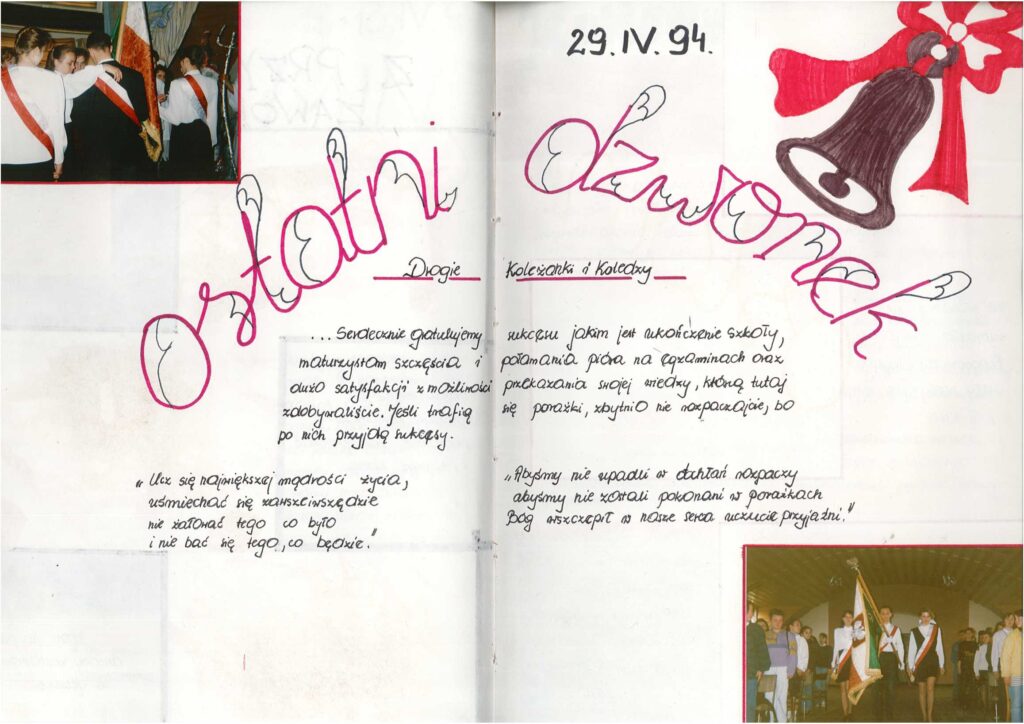 29.IV.94.
ostatni dzwonek
Drogie Koleżanki i Koledzy
...Serdecznie gratulujemy sukcesu jakim jest ukończenie szkoły,
maturzystom szczęścia i połamania pióra na egzaminach oraz
dużo satysfakcji z możliwości przekazania swojej wiedzy, którą tutaj
zdobywaliście. Jeśli trafią się porażki, zbytnio nie rozpaczajcie, bo
po nich przyjdą sukcesy.
„Ucz się największej mądrości życia,
uśmiechać się zawsze i wszędzie
nie żałować tego co było
i nie bać się tego, co będzie."
„Abyśmy nie upadli w otchłań rozpaczy
abyśmy nie zostali pokonani w porażkach
Bóg wszczepił w nasze serca uczucie przyjaźni."